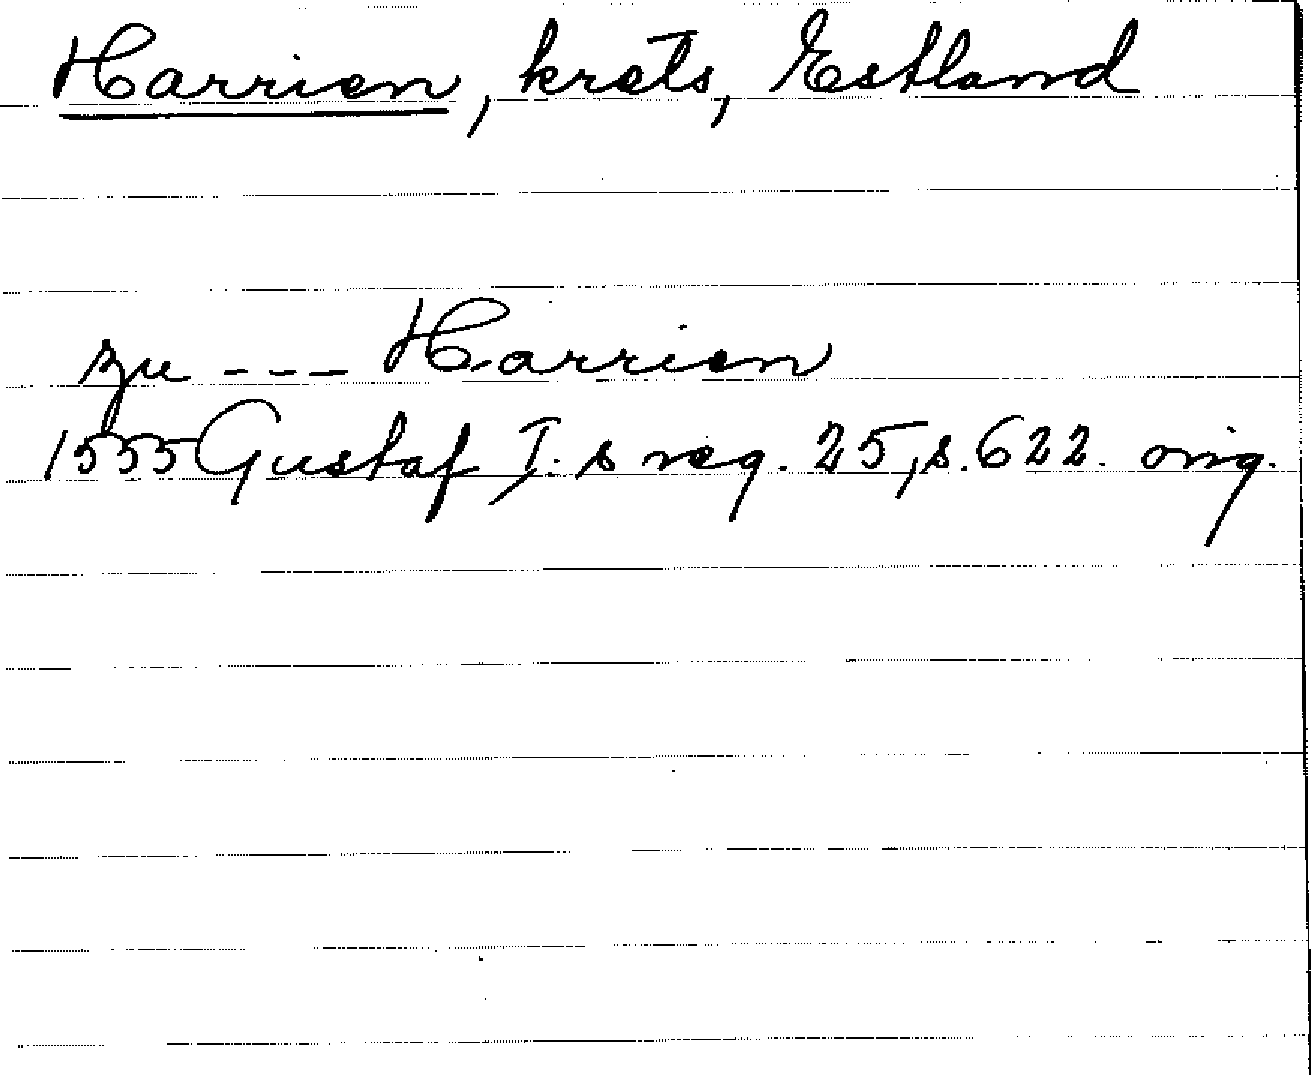 Harrien, krets, Estland
zu --- Harrien
1555 Gustaf I.s reg. 25, s. 622. orig.